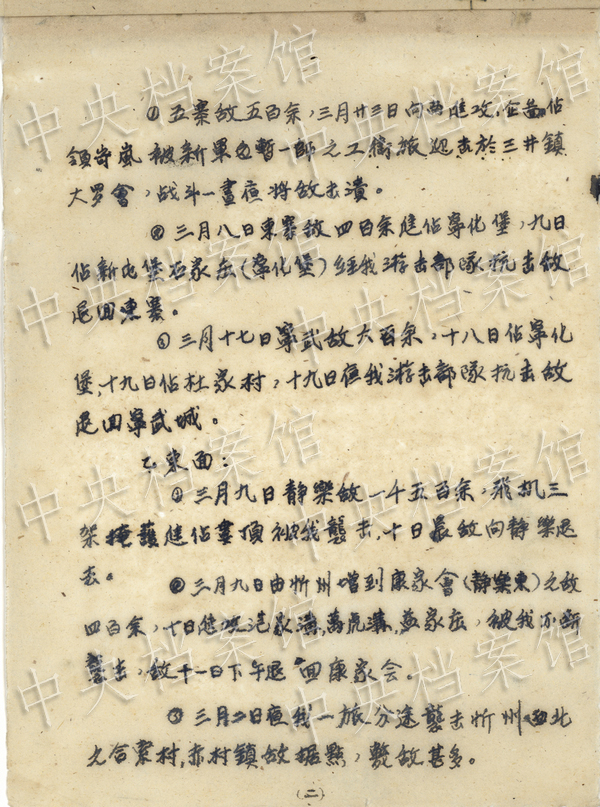 ①五寨敌五百余，三月廿三日向西进攻，企图佔
领岢岚被新军包暂一师之工衛旅迎击於三井鎮
大罗會，战斗一晝夜将敌击潰。
②三月八日東寨敌四百余進佔寧化堡，九日
佔新屯堡石家庄(寧化堡)经我游击部隊抗击敌
退回東寨。
③三月十七日寧武敌六百余，十八日佔寧化
堡，十九日佔杜家村，十九日夜我游击部隊抗击敌
退回寧武城。
乙東面：
①三月九日静樂敌一千五百余，飛机三
架掩護進佔婁頂被我襲击，十日晨敌向静樂退
去。
②三月九日由忻州增到康家會(静樂東)之敌
四百余，十日進攻范家溝，萬虎溝，益家庄，被我不断
襲击，敌十一日下午退回康家会。
③三月二日夜我一旅分途襲击忻州西北
之合索村，赤村鎮敌据點，斃敌甚多。
(二)
中央档案馆
中央档案馆
中央档案馆
中央档案馆
中央档案馆
中央档案馆
中央档案馆
中央档案馆